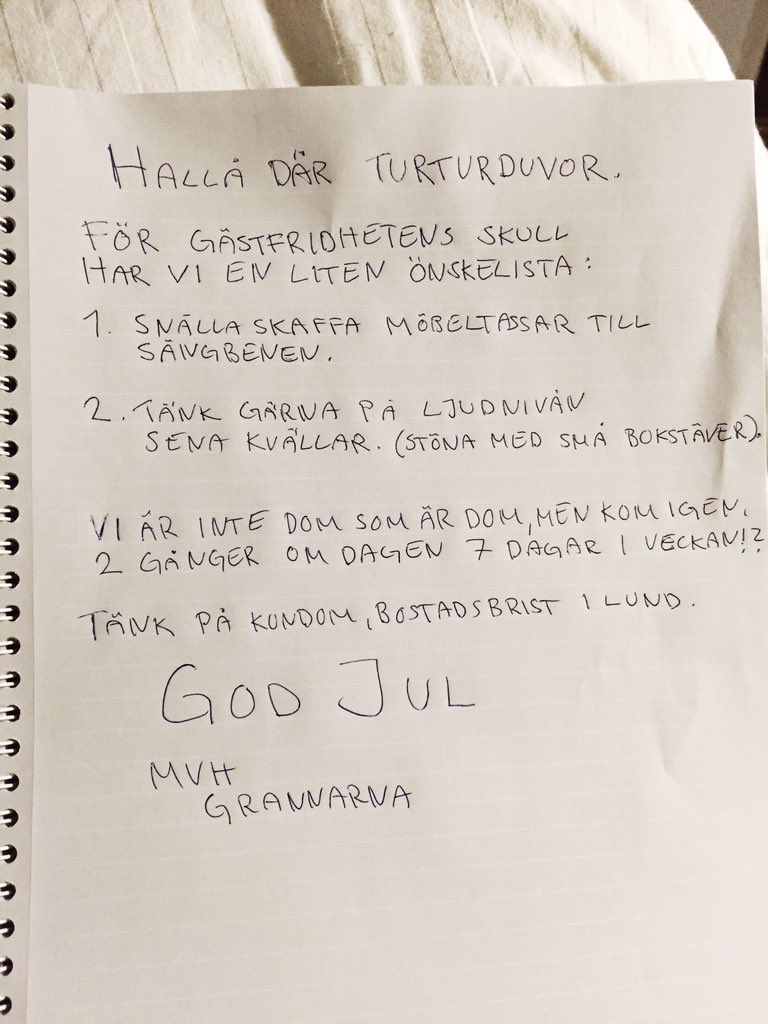 HALLÅ DÄR TURTURDUVOR.
FÖR GÄSTFRIDHETENS SKULL
HAR VI EN LITEN ÖNSKELISTA:
1. SNÄLLA SKAFFA MÖBELTASSAR TILL
SÄNGBENEN.
2. TÄNK GÄRNA PÅ LJUDNIVÅN
SENA KVÄLLAR. (STÖNA MED SMÅ BOKSTÄVER).
VI ÄR INTE DOM SOM ÄR DOM, MEN KOM IGEN.
2 GÅNGER OM DAGEN 7 DAGAR I VECKAN!?
TÄNK PÅ KONDOM, BOSTADSBRIST I LUND.
GOD JUL
MVH
GRANNARNA